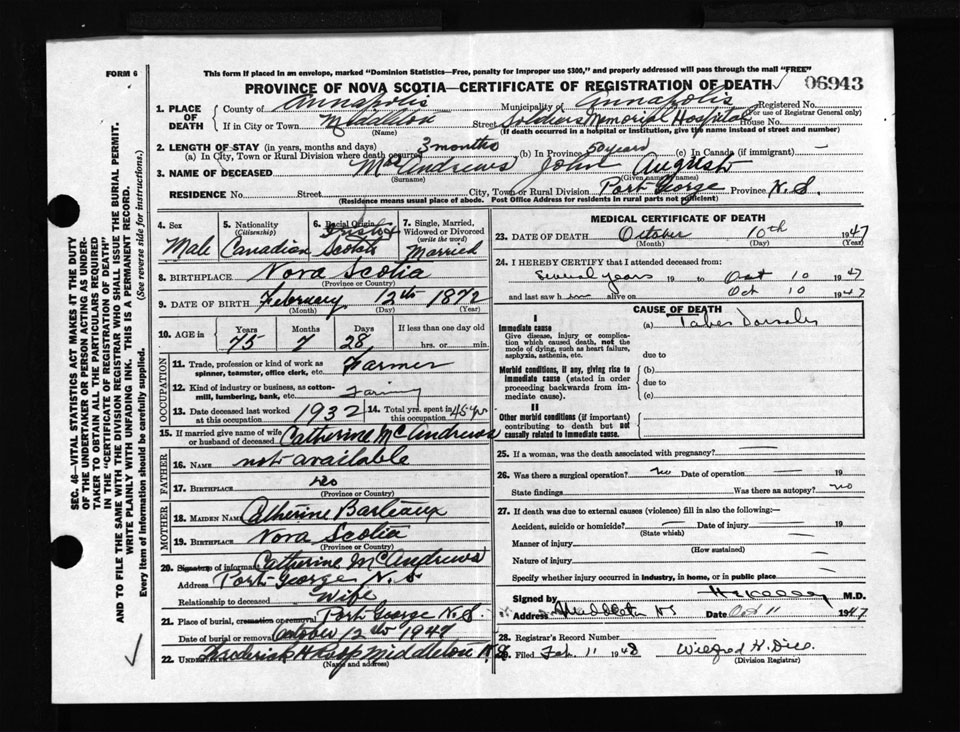 FORM 6
This form if placed in an envelope, marked "Dominion Statistics—Free, penalty for improper use $300," and properly addressed will pass through the mail "FREE"
PROVINCE OF NOVA SCOTIA—CERTIFICATE OF REGISTRATION OF DEATH 06943
1. PLACE OF DEATH County of Annapolis Municipality of Annapolis Registered No.
(For use of Registrar General only)
If in City or Town Middleton (Name) Street Soldiers Memorial Hospital House No.
(If death occurred in a hospital or institution, give the name instead of street and number)
2. LENGTH OF STAY (in years, months and days)
(a) In City, Town or Rural Division where death occurred 3 months (b) In Province 50 years (c) In Canada (if immigrant) —
3. NAME OF DECEASED McAndrews John August
(Surname) (Given names)
RESIDENCE No. Street City, Town or Rural Division Port George Province N.S.
(Residence means usual place of abode. Post Office Address for residents in rural parts not sufficient)
4. Sex Male
5. Nationality (Citizenship) Canadian
6. Racial Origin Irish Scotch
7. Single, Married, Widowed or Divorced (write the word) Married
8. BIRTHPLACE Nova Scotia
(Province or Country)
9. DATE OF BIRTH February 12th 1872
(Month) (Day) (Year)
10. AGE in Years 75 Months 7 Days 28 If less than one day old hrs. or min.
OCCUPATION
11. Trade, profession or kind of work as spinner, teamster, office clerk, etc. Farmer
12. Kind of industry or business, as cotton-mill, lumbering, bank, etc.
13. Date deceased last worked at this occupation 1932
14. Total yrs. spent in this occupation 45 yr
15. If married give name of wife or husband of deceased Catherine McAndrews
FATHER
16. NAME not available
17. BIRTHPLACE
(Province or Country)
MOTHER
18. MAIDEN NAME Catherine Barteaux
19. BIRTHPLACE Nova Scotia
(Province or Country)
20. Signature of informant Catherine McAndrews
Address Port George N.S
Relationship to deceased Wife
21. Place of burial, cremation or removal Port George N.S.
Date of burial or removal October 12th 1947
22. UNDERTAKER Middleton N.S
(Name and address)
MEDICAL CERTIFICATE OF DEATH
23. DATE OF DEATH October 10th 1947
(Month) (Day) (Year)
24. I HEREBY CERTIFY that I attended deceased from:
Several years 19 to Oct 10 1947
and last saw him alive on Oct 10 1947
CAUSE OF DEATH
I
Immediate cause (a) Tabes Dorsalis
Give disease, injury or complication which caused death, not the mode of dying, such as heart failure, asphyxia, asthenia, etc.
due to
Morbid conditions, if any, giving rise to immediate cause (stated in order proceeding backwards from immediate cause).
(b)
due to
(c)
II
Other morbid conditions (if important) contributing to death but not causally related to immediate cause.
25. If a woman, was the death associated with pregnancy?
26. Was there a surgical operation? no Date of operation — 19
State findings Was there an autopsy? no
27. If death was due to external causes (violence) fill in also the following:—
Accident, suicide or homicide? — Date of injury — 19
(State which)
Manner of injury
(How sustained)
Nature of injury
Specify whether injury occurred in industry, in home, or in public place
Signed by M.D.
Address Middleton NS Date Oct 11 1947
28. Registrar's Record Number
29. Filed Feb. 11 1948
(Division Registrar)
SEC. 46—VITAL STATISTICS ACT MAKES IT THE DUTY
OF THE UNDERTAKER OR PERSON ACTING AS UNDERTAKER TO OBTAIN ALL THE PARTICULARS REQUIRED
IN THE "CERTIFICATE OF REGISTRATION OF DEATH"
AND TO FILE THE SAME WITH THE DIVISION REGISTRAR WHO SHALL ISSUE THE BURIAL PERMIT.
WRITE PLAINLY WITH UNFADING INK. THIS IS A PERMANENT RECORD.
Every item of information should be carefully supplied. (See reverse side for instructions.)